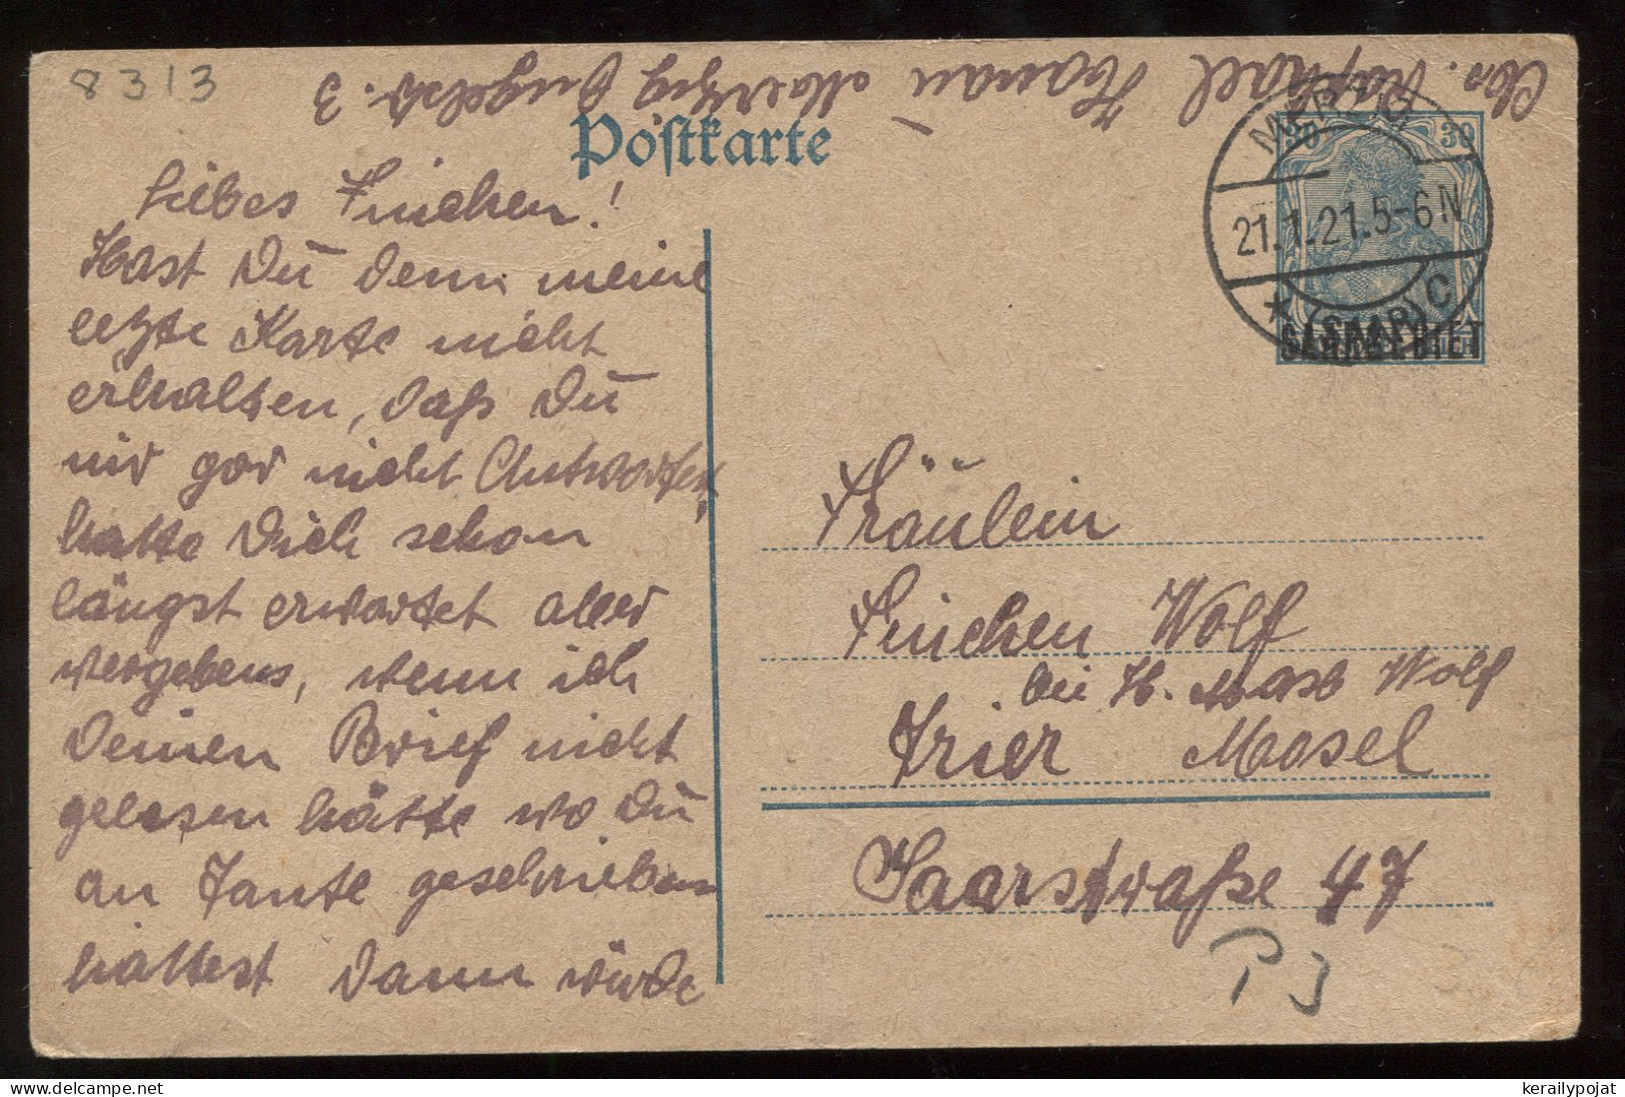 8313
Abs. Raphael Hanau Merzig
Postkarte
Liebes Finchen!
Hast Du denn meine
letzte Karte nicht
erhalten, daß Du
mir gar nicht Antwortest,
hatte Dich schon
längst erwartet aber
vergebens, wenn ich
Deinen Brief nicht
gelesen hätte wo Du
an Tante geschrieben
hattest dann würde
30 30
SAARGEBIET
MERZIG
21.1.21.5-6N
* (SAAR) C
Fräulein
Finchen Wolf
bei H. Max Wolf
Trier Mosel
Saarstraße 47
kerailypojat - delcampe.net